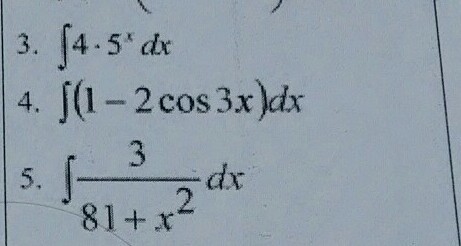 3. ∫4·5ˣ dx
4. ∫(1 − 2 cos 3x)dx
5. ∫ 3/(81 + x²) dx